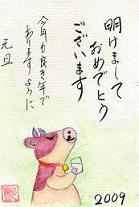 明けまして
おめでとう
ございます
今年も良き年で
ありますように
元旦
2009